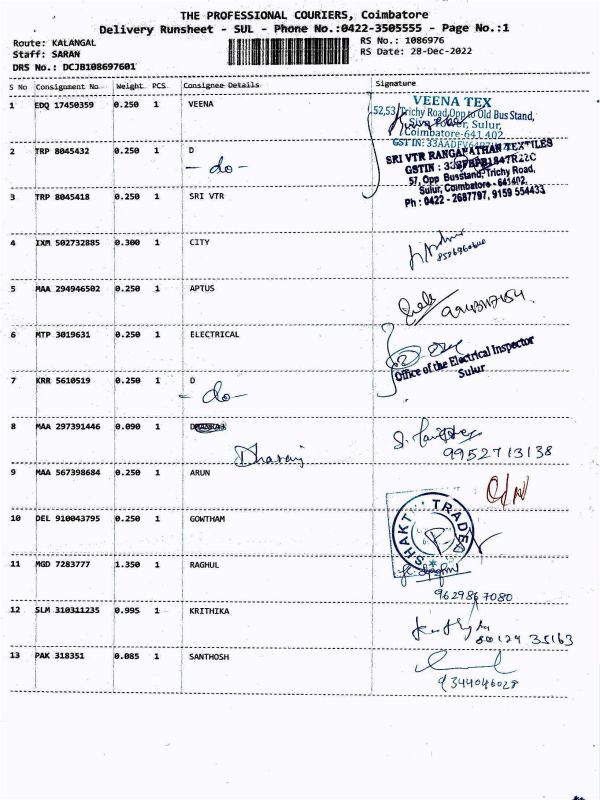 THE PROFESSIONAL COURIERS, Coimbatore
Delivery Runsheet - SUL - Phone No.:0422-3505555 - Page No.:1
Route: KALANGAL
RS No.: 1086976
Staff: SARAN
RS Date: 28-Dec-2022
DRS No.: DCJB108697601
S No Consignment No Weight PCS Consignee Details Signature
1 EDQ 17450359 0.250 1 VEENA
VEENA TEX
52,53, Trichy Road, Opp to Old Bus Stand,
Sulur,
Coimbatore-641 402
GST IN:
2 TRP 8045432 0.250 1 D
- do -
SRI VTR RANGANATHAN TEXTILES
GSTIN :
57, Opp Busstand, Trichy Road,
Sulur, Coimbatore - 641402,
Ph : 0422 - 2687797, 9159 554433
3 TRP 8045418 0.250 1 SRI VTR
4 IXM 502732885 0.300 1 CITY
5 MAA 294946502 0.250 1 APTUS
6 MTP 3019631 0.250 1 ELECTRICAL
Office of the Electrical Inspector
Sulur
7 KRR 5610519 0.250 1 D
- do -
8 MAA 297391446 0.090 1
Dharani
9952713138
9 MAA 567398684 0.250 1 ARUN
10 DEL 910043795 0.250 1 GOWTHAM
SHAKTI TRADERS
11 MGD 7283777 1.350 1 RAGHUL
9629867080
12 SLM 310311235 0.995 1 KRITHIKA
80124 35163
13 PAK 318351 0.085 1 SANTHOSH
9344046028